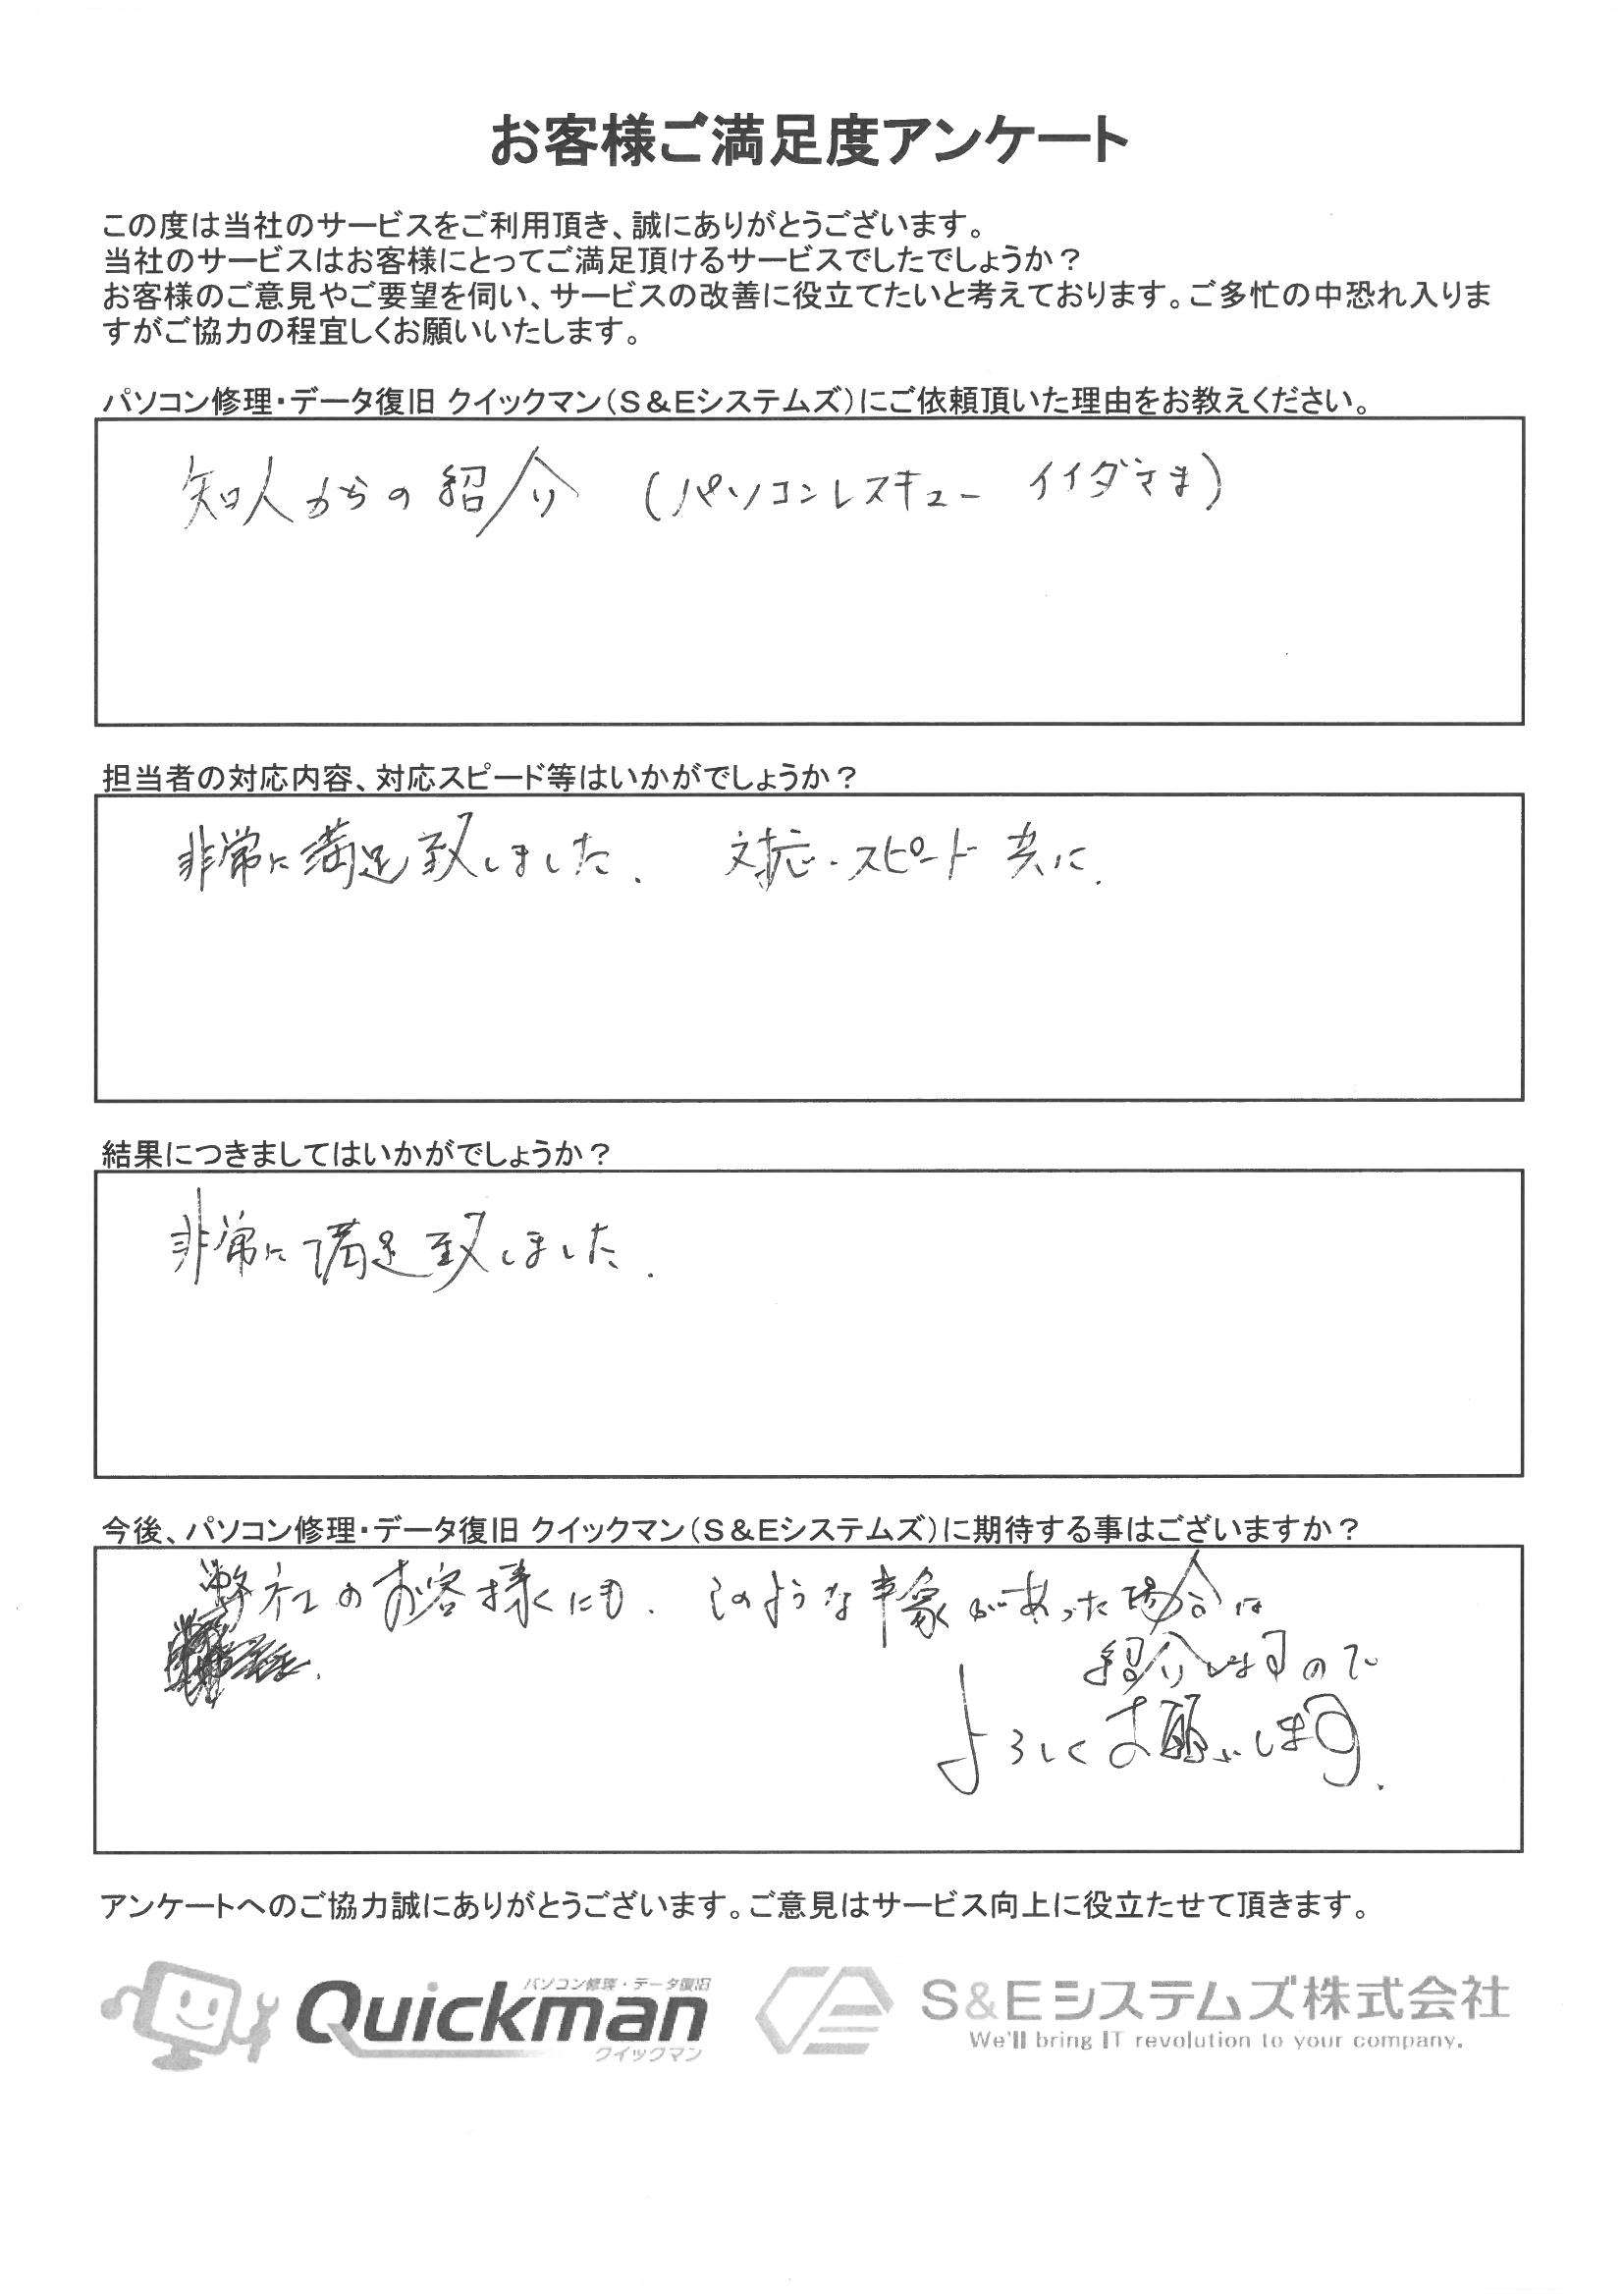 お客様ご満足度アンケート
この度は当社のサービスをご利用頂き、誠にありがとうございます。
当社のサービスはお客様にとってご満足頂けるサービスでしたでしょうか？
お客様のご意見やご要望を伺い、サービスの改善に役立てたいと考えております。ご多忙の中恐れ入りま
すがご協力の程宜しくお願いいたします。
パソコン修理・データ復旧 クイックマン（S＆Eシステムズ）にご依頼頂いた理由をお教えください。
知人からの紹介 （パソコンレスキュー イイダさま）
担当者の対応内容、対応スピード等はいかがでしょうか？
非常に満足致しました. 対応・スピード共に.
結果につきましてはいかがでしょうか？
非常に満足致しました.
今後、パソコン修理・データ復旧 クイックマン（S＆Eシステムズ）に期待する事はございますか？
弊社のお客様にも. このような事象があった場合は
紹介しますので
よろしくお願いします.
アンケートへのご協力誠にありがとうございます。ご意見はサービス向上に役立たせて頂きます。
パソコン修理・データ復旧
Quickman
クイックマン
S&Eシステムズ株式会社
We'll bring IT revolution to your company.